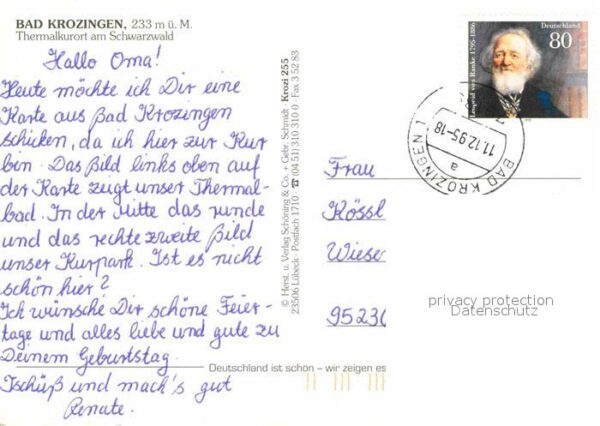 BAD KROZINGEN, 233 m ü. M.
Thermalkurort am Schwarzwald
Hallo Oma!
Heute möchte ich Dir eine
Karte aus Bad Krozingen
schicken, da ich hier zur Kur
bin. Das Bild links oben auf
der Karte zeigt unser Thermal-
bad. In der Mitte das runde
und das rechte zweite Bild
unser Kurpark. Ist es nicht
schön hier?
Ich wünsche Dir schöne Feier-
tage und alles liebe und gute zu
Deinem Geburtstag.
Tschüß und mach's gut
Renate.
© Herst. u. Verlag Schöning & Co. + Gebr. Schmidt · Krozi 255
23506 Lübeck · Postfach 1710 · ☎ (04 51) 310 310 0 · Fax 3 52 83
Deutschland ist schön – wir zeigen es
Leopold von Ranke 1795-1886
Deutschland
80
BAD KROZINGEN 1
11.12.95-18
a
Frau
Kössl
Wiese
95230
privacy protection
Datenschutz